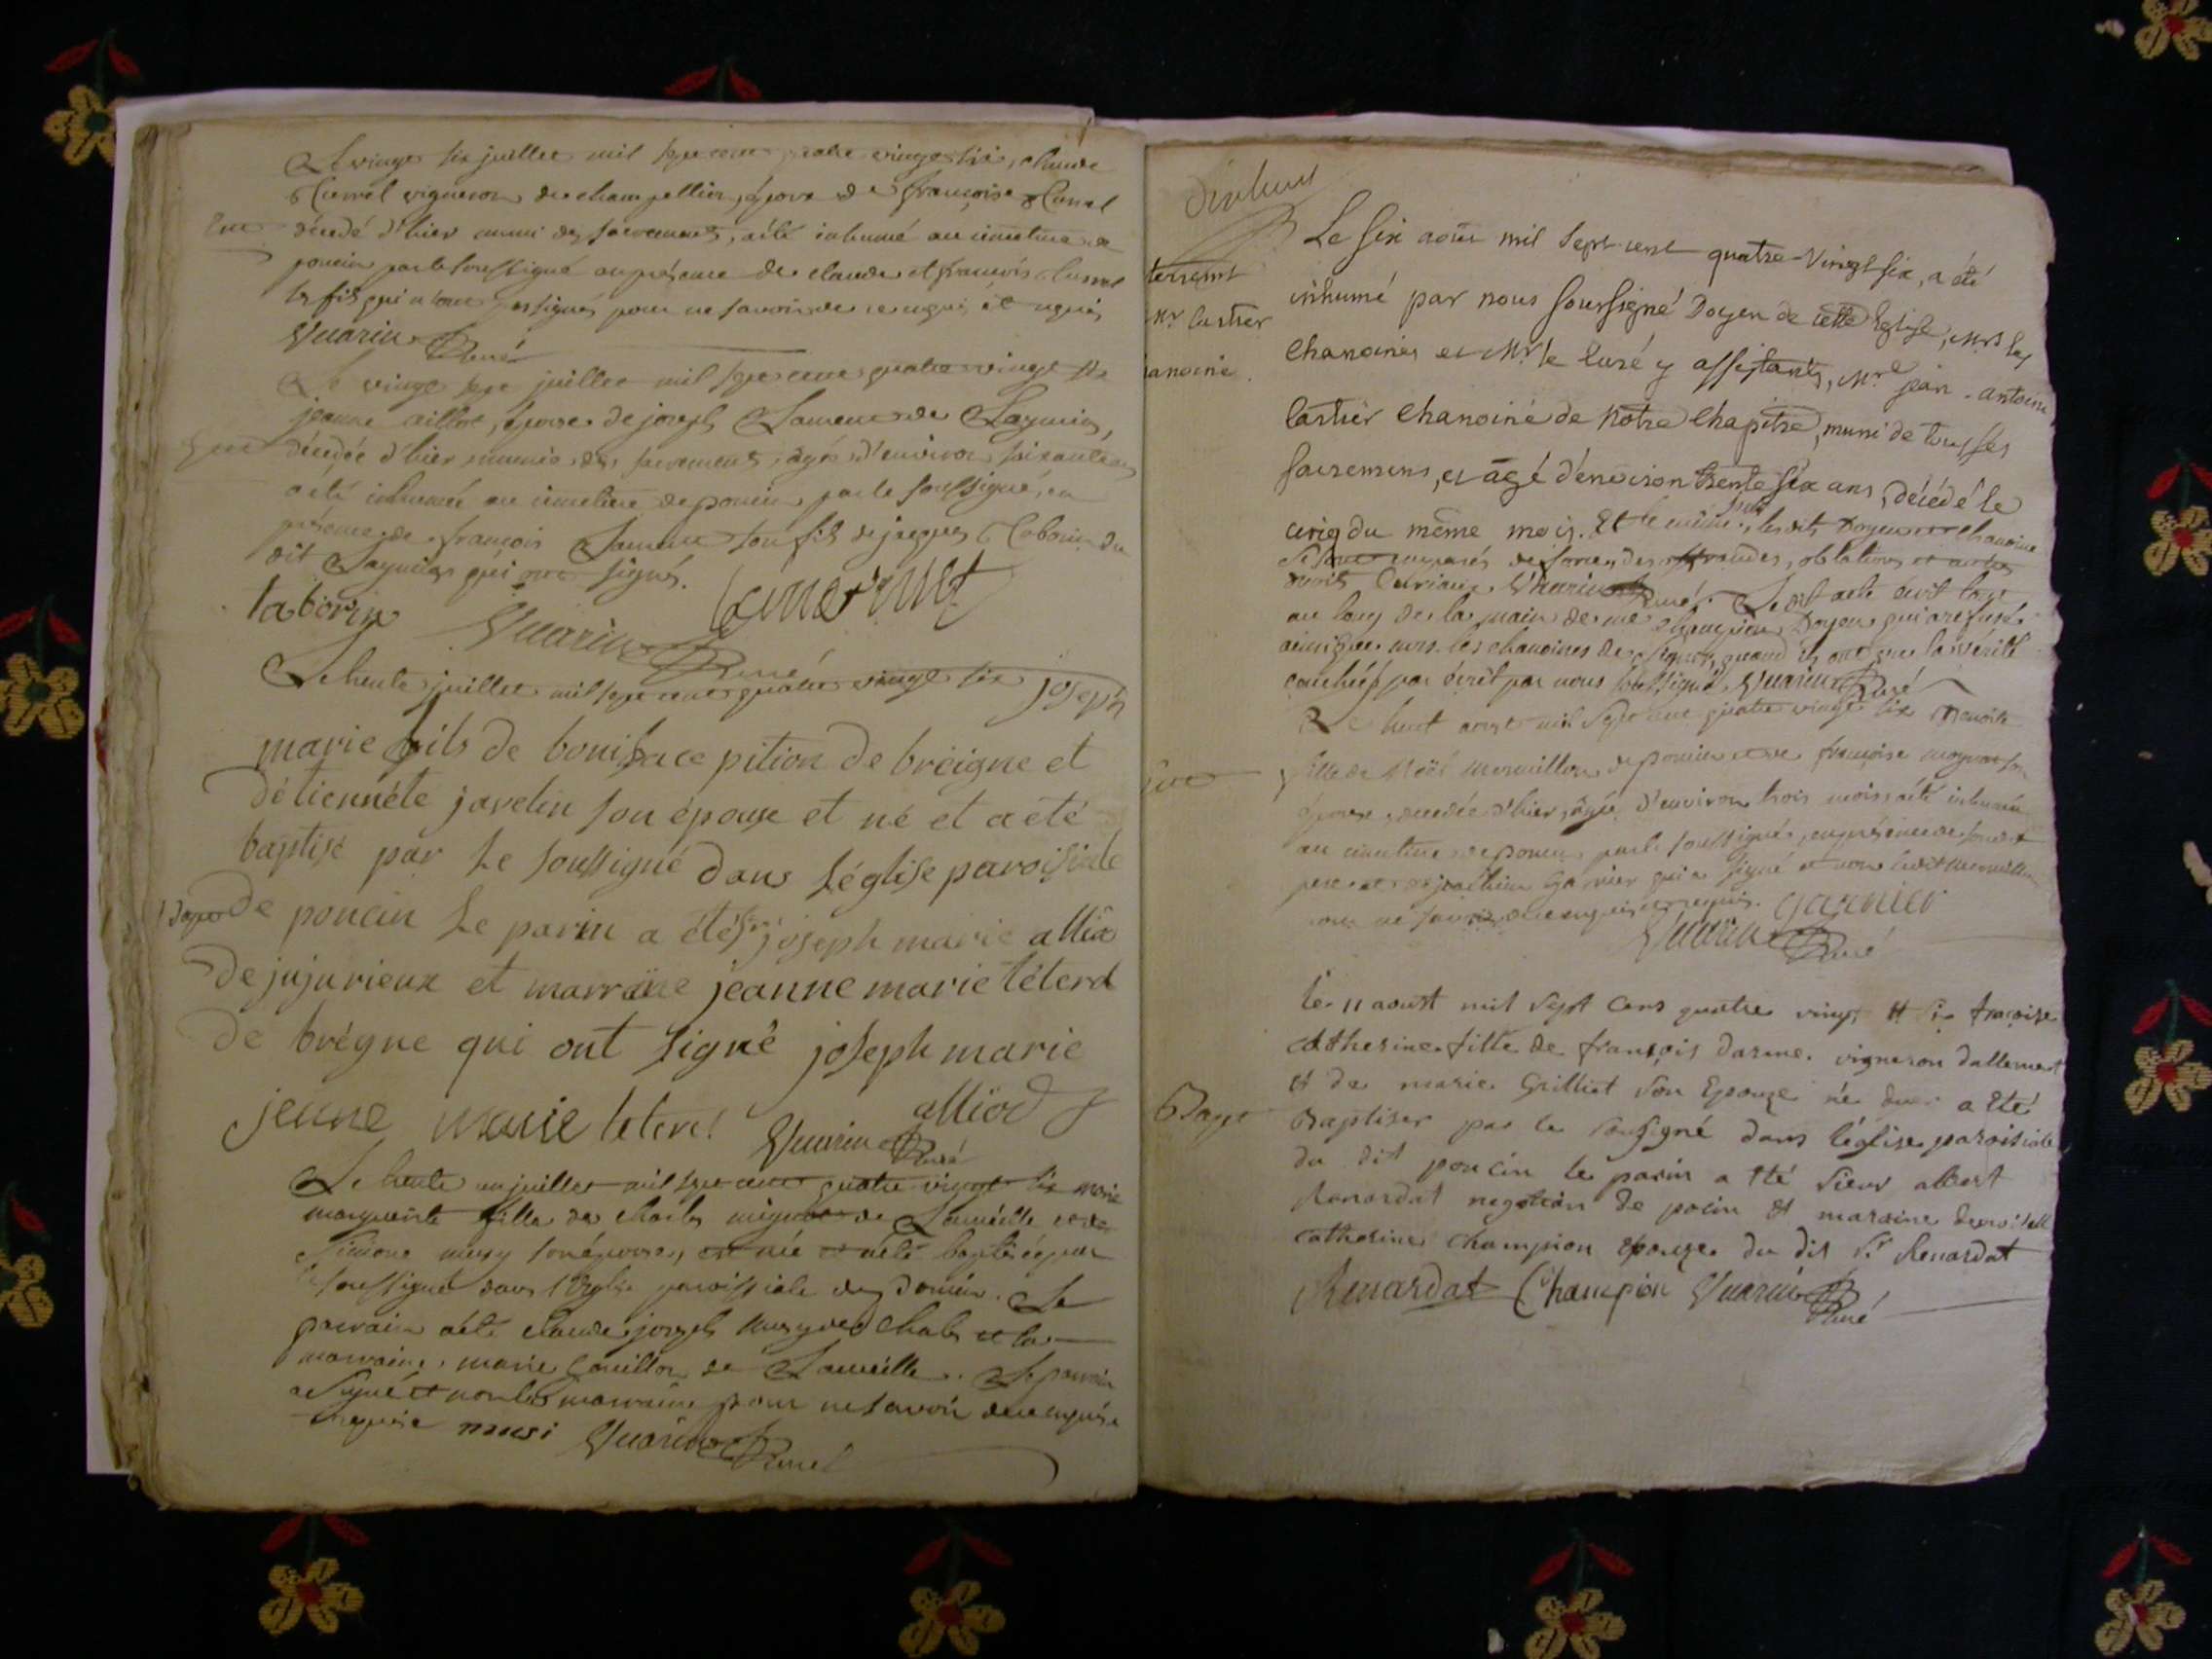 Le vingt six juillet mil sept cent quatre vingt six, claude
vigneron de champellier, époux de françoise
Ent décédé d'hier muni des sacrements, a été inhumé au cimetière de
poncin par le soussigné en présence de claude et françois
ses fils qui n'ont pas signés pour ne savoir de ce enquis et requis
Guarin Curé
Le vingt sept juillet mil sept cent quatre vingt six
jeanne aillod, épouse de joseph
décédée d'hier munie des sacrements, agée d'environ soixante ans
a été inhumée au cimetière de poncin par le soussigné, en
présence de françois son fils de jacques Laborin du
dit qui ont signés.
laborin Guarin Curé
Le trente juillet mil sept cent quatre vingt six joseph
marie fils de boniface pition de breigne et
détiennéte javelin son épouse et né et a eté
baptisé par le soussigné dans l'église paroisiale
Bapt de poncin le parin a été Sr joseph marie alliö
de jujurieux et marraine jeanne marie téterd
de brégne qui ont signé joseph marie
alliod
jeune marie teterd Guarin Curé
Le trente un juillet mil sept cent quatre vingt six marie
marguerite fille de charles de et de
Simone musy son épouse, est née et a été baptisée par
le soussigné dans l'Eglise paroissiale de Poncin. Le
parrain a été claude joseph musy de Chale et la
marraine marie de . Le parrain
a signé et non la marraine pour ne savoir de ce enquise
et requise musi Guarin Curé
dixhuit
Le six août mil sept cent quatre-vingt six, a été
terremt inhumé par nous soussigné Doyen de cette Eglise, Mrs les
Mr lastier chanoines et Mr le curé y assistants, Mre jean-antoine
anoine. lastier chanoine de notre chapitre, muni de tous ses
sacremens, et âgé d'environ trente six ans, décédé le
cinq du même mois. Et le même jour, lesdits Doyen et chanoine
se sont emparés de force des offrandes, oblations et autres
droits Curiaux Guarin Curé. Le dit acte écrit tout
au long de la main de me champion Doyen qui a refusé
ainsi que mrs. les chanoines de signer, quand ils ont vu la vérité
couchée par écrit par nous soussigné. Guarin Curé
Le huit aoust mil sept cent quatre vingt six Benoite
fille de Noël mermillon de poncin et de françoise son
épouse, décédée d'hier, agée d'environ trois mois, a été inhumée
au cimetière de poncin par le soussigné, en présence de son dit
père et de joachim garnier qui a signé et non ledit mermillon
pour ne savoir de ce enquis et requis. garnier
Guarin Curé
le 11 aoust mil sept cens quatre vingt et six françoise
catherine fille de françois darme vigneron dallement
et de marie Grilliet son Epouze né duer a Eté
Bapt Baptiser par le sousigné dans l'église paroisiale
du dit poncin le parin a Eté sieur albert
Renardat negotian de pocin et maraine demoiselle
catherine champion Epouze du dit Sr Renardat
Renardat Champion Guarin Curé